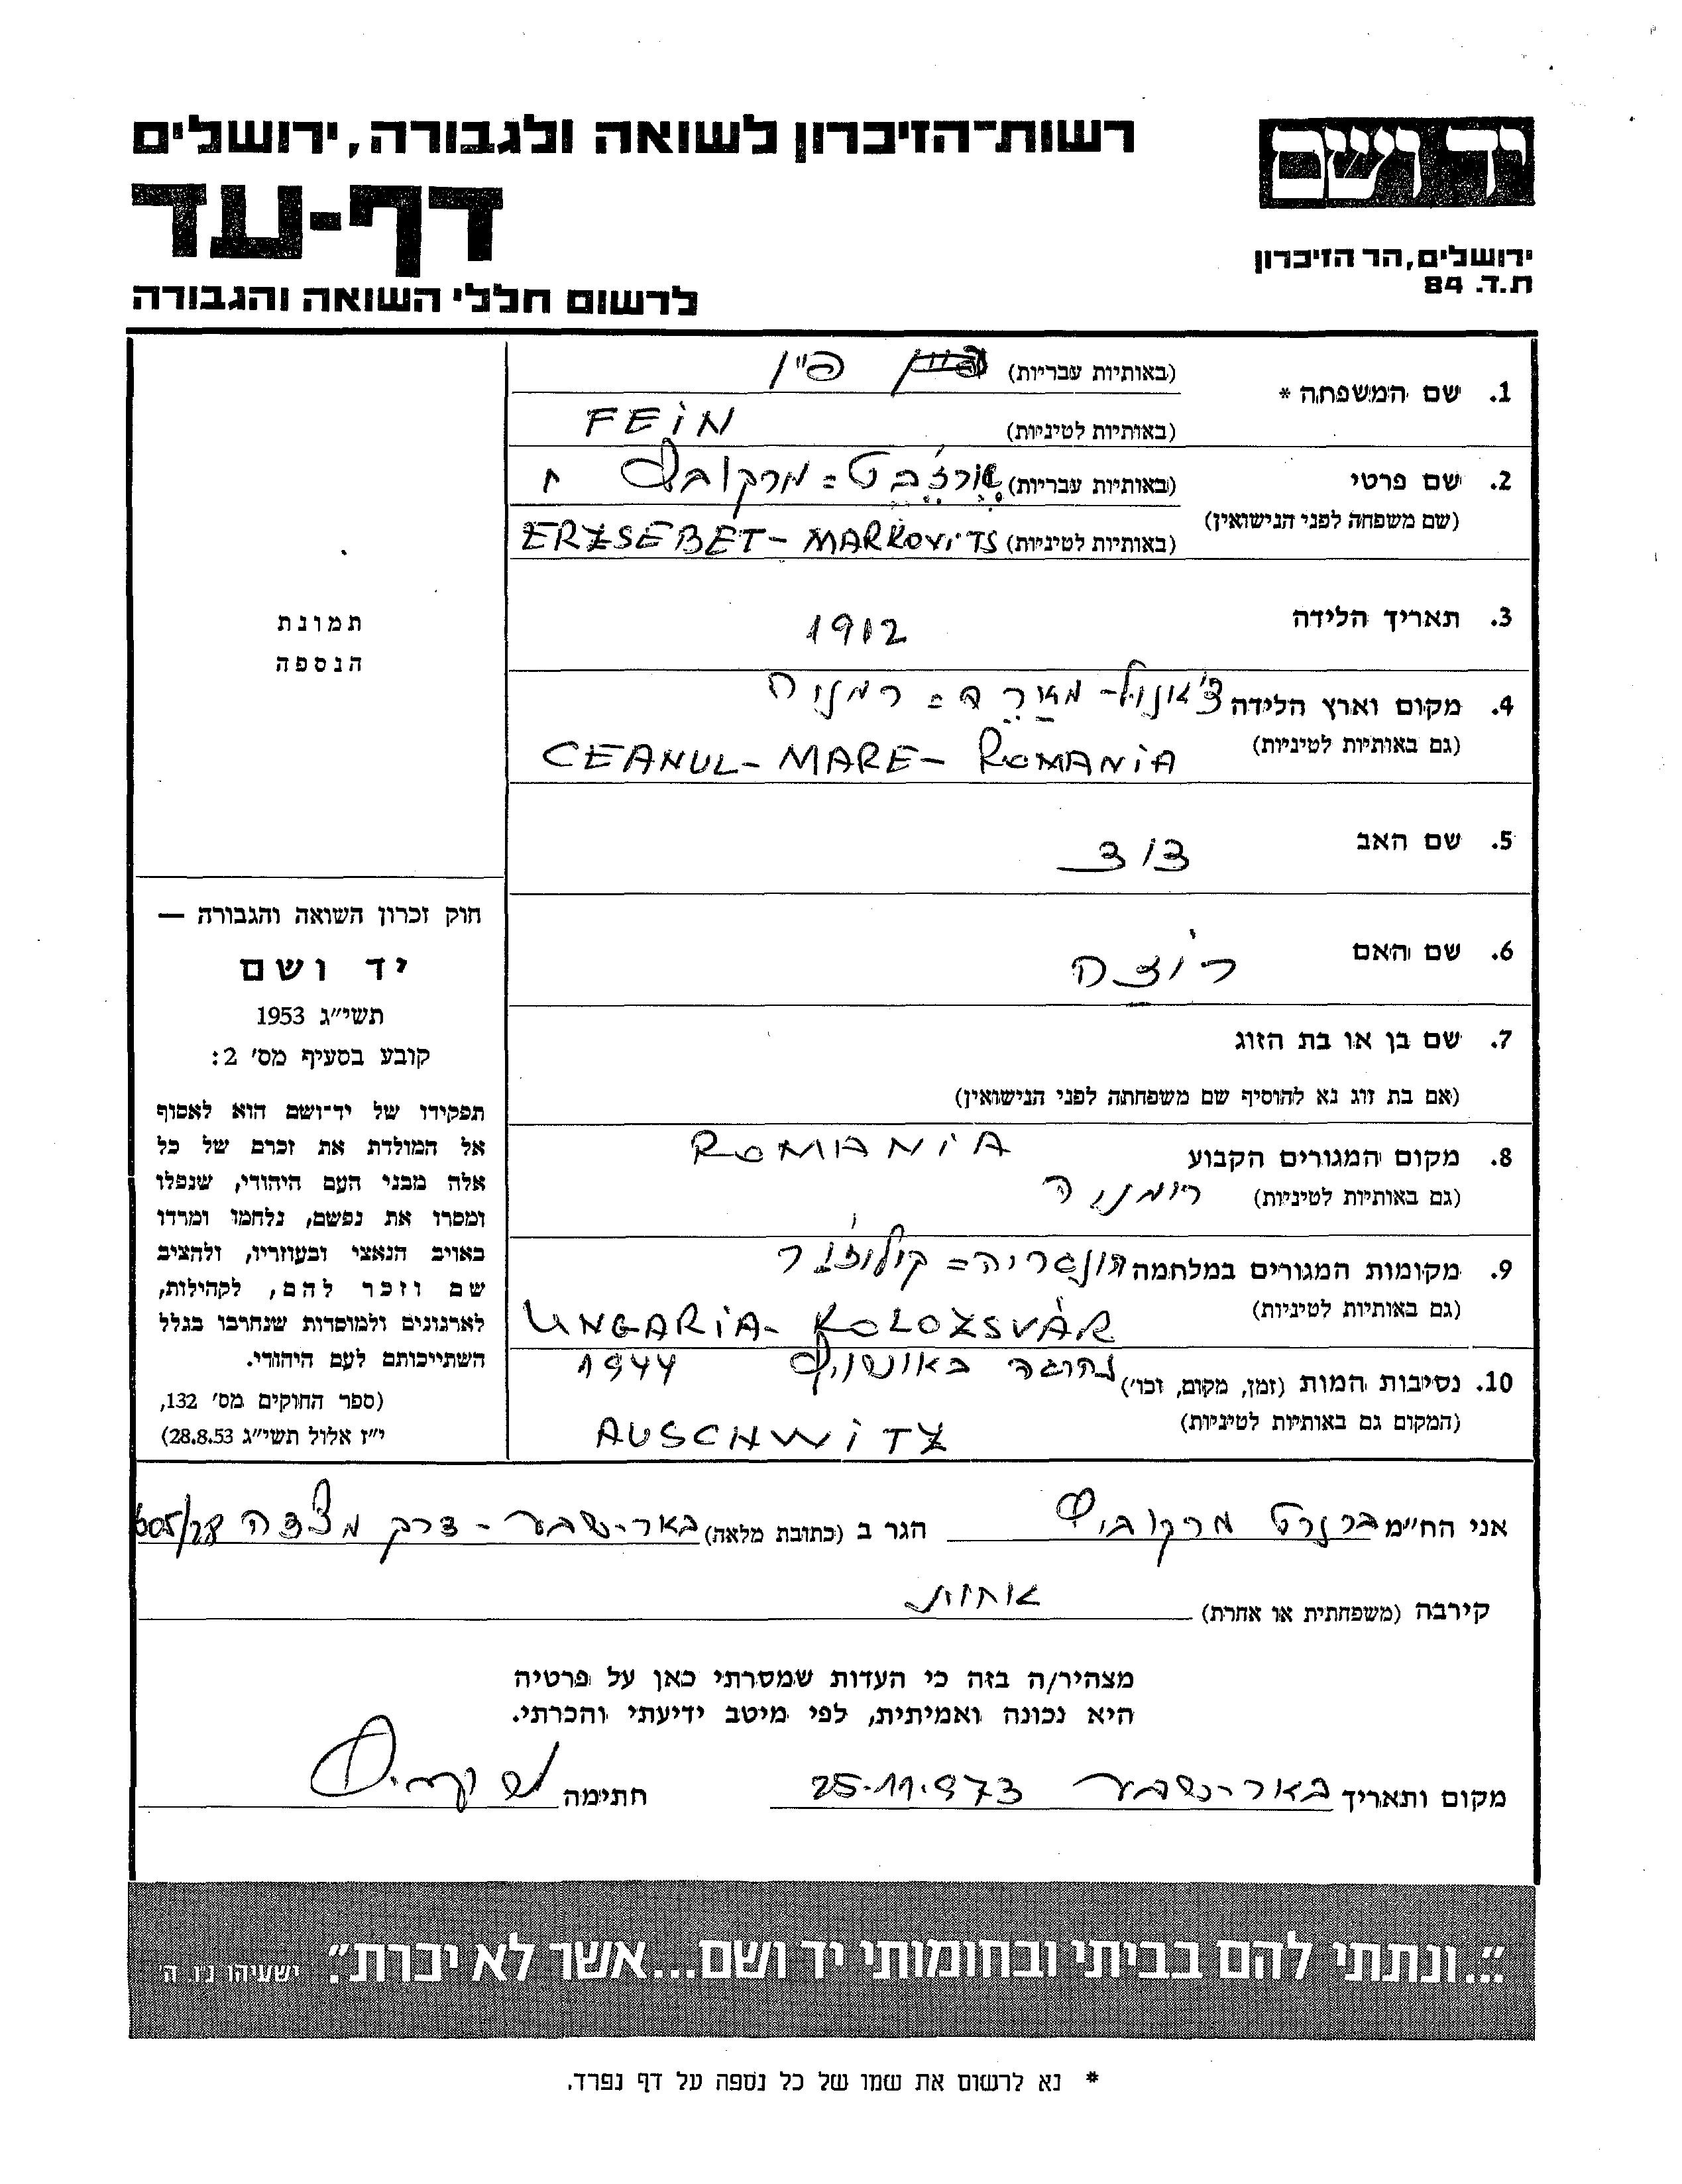 רשות־הזיכרון לשואה ולגבורה, ירושלים
יד ושם
דף-עד
ירושלים, הר הזיכרון
ת.ד. 84
לרשום חללי השואה והגבורה
1. שם המשפחה *
(באותיות עבריות) פיין
(באותיות לטיניות) FEIN
2. שם פרטי
(שם משפחה לפני הנישואין)
(באותיות עבריות) ארז'בט = מרקוביץ
(באותיות לטיניות) ERZSEBET - MARKOVITS
3. תאריך הלידה 1912
4. מקום וארץ הלידה צ'אנול - מארה = רמניה
(גם באותיות לטיניות) CEANUL - MARE - ROMANIA
5. שם האב דוד
6. שם האם רוזה
7. שם בן או בת הזוג
(אם בת זוג נא להוסיף שם משפחתה לפני הנישואין)
8. מקום המגורים הקבוע ROMANIA
(גם באותיות לטיניות) רומניה
9. מקומות המגורים במלחמה הונגריה = קולוז'וור
(גם באותיות לטיניות) UNGARIA - KOLOZSVÁR
10. נסיבות המות (זמן, מקום, וכו') נהרגה באושויץ 1944
(המקום גם באותיות לטיניות) AUSCHWITZ
תמונת
הנספה
חוק זכרון השואה והגבורה —
יד ושם
תשי״ג 1953
קובע בסעיף מס' 2:
תפקידו של יד־ושם הוא לאסוף
אל המולדת את זכרם של כל
אלה מבני העם היהודי, שנפלו
ומסרו את נפשם, נלחמו ומרדו
באויב הנאצי ובעוזריו, ולהציב
שם וזכר להם, לקהילות,
לארגונים ולמוסדות שנחרבו בגלל
השתייכותם לעם היהודי.
(ספר החוקים מס' 132,
י״ז אלול תשי״ג 28.8.53)
אני הח״מ ברנרט מרקוביץ הגר ב (כתובת מלאה) באר-שבע - דרך מצדה 605/28
קירבה (משפחתית או אחרת) אחות
מצהיר/ה בזה כי העדות שמסרתי כאן על פרטיה
היא נכונה ואמיתית, לפי מיטב ידיעתי והכרתי.
מקום ותאריך באר-שבע 25.11.973 חתימה
״...ונתתי להם בביתי ובחומותי יד ושם...אשר לא יכרת״. ישעיהו נ״ו ה'
* נא לרשום את שמו של כל נספה על דף נפרד.